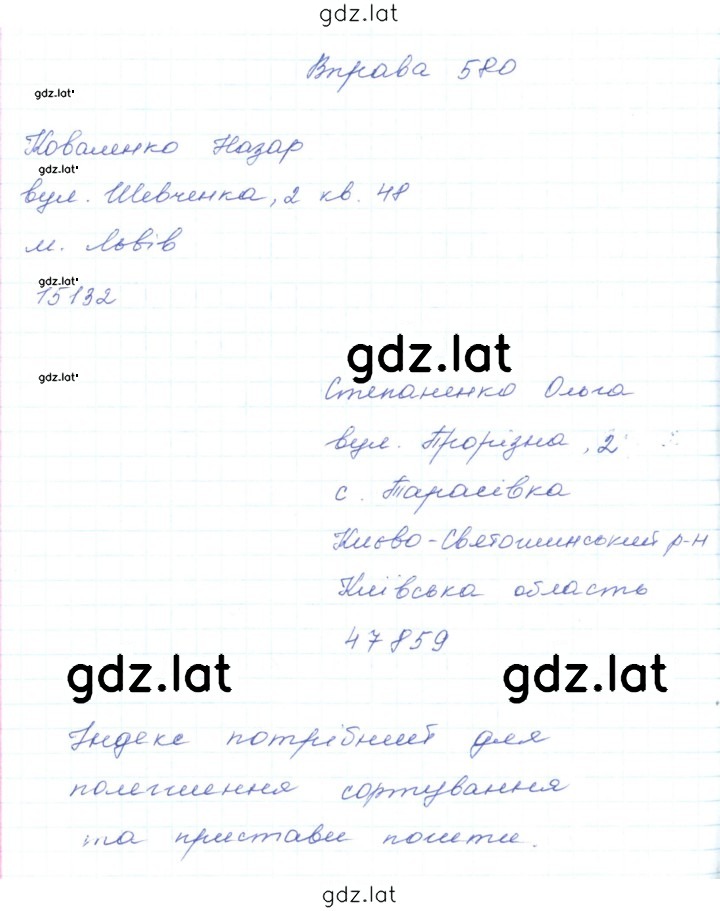 gdz.lat
Вправа 580
gdz.lat
Коваленко Назар
gdz.lat
вул. Шевченка, 2 кв. 48
м. Львів
gdz.lat
15132
gdz.lat
gdz.lat
Степаненко Ольга
вул. Прорізна, 2
с. Тарасівка
Києво-Святошинський р-н
Київська область
47859
gdz.lat gdz.lat
Індекс потрібний для
полегшення сортування
та пристави пошти.
gdz.lat